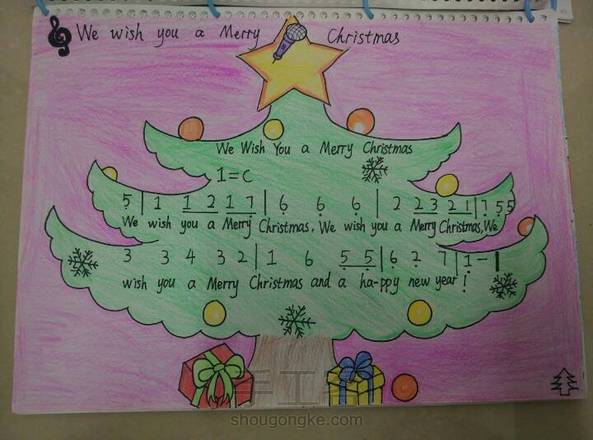 We wish you a Merry Christmas
We Wish You a Merry Christmas
1=C
5 | 1 1 2 1 7 | 6 6 6 | 2 2 3 2 1 | 7 5 5
We wish you a Merry Christmas, We wish you a Merry Christmas, We
3 3 4 3 2 | 1 6 5 5 | 6 2 7 | 1 - |
wish you a Merry Christmas and a ha-ppy new year!
手工客
shougongke.com